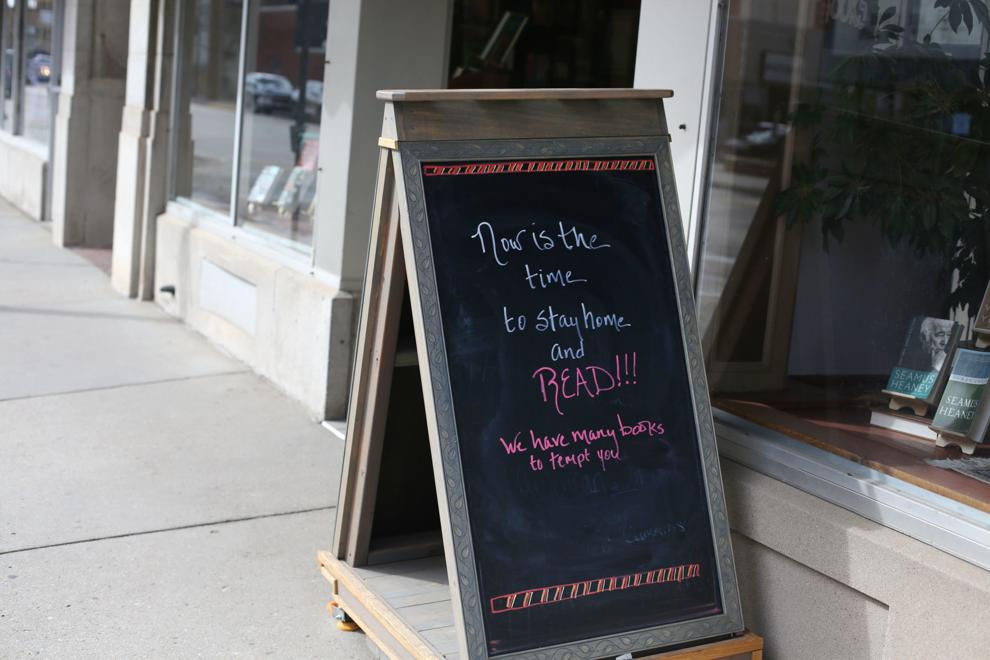 Now is the
time
to stay home
and
READ!!!
We have many books
to tempt you
SEAMUS
HEANEY
SEAMUS
HEANEY